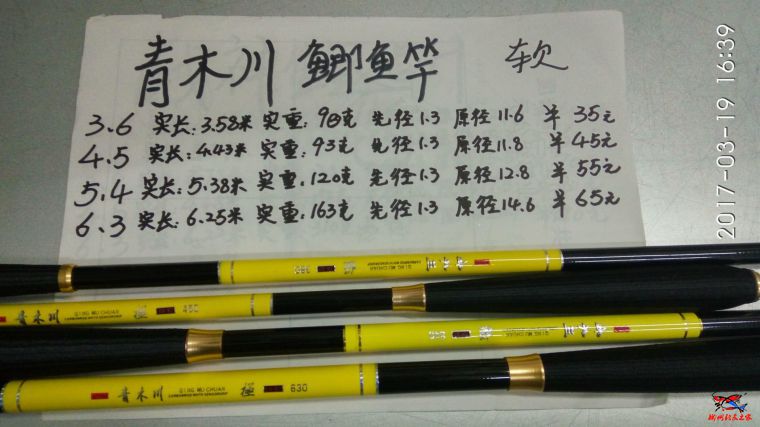 青木川 鲫鱼竿 软
3.6 实长:3.58米 实重:98克 先径1.3 原径11.6 ¥ 35元
4.5 实长:4.43米 实重:93克 先径1.3 原径11.8 ¥ 45元
5.4 实长:5.38米 实重:120克 先径1.3 原径12.8 ¥ 55元
6.3 实长:6.25米 实重:163克 先径1.3 原径14.6 ¥ 65元
2017-03-19 16:39
青木川 QING MU CHUAN 360
青木川 QING MU CHUAN 450
青木川 QING MU CHUAN
青木川 QING MU CHUAN 630
柳州钓友之家